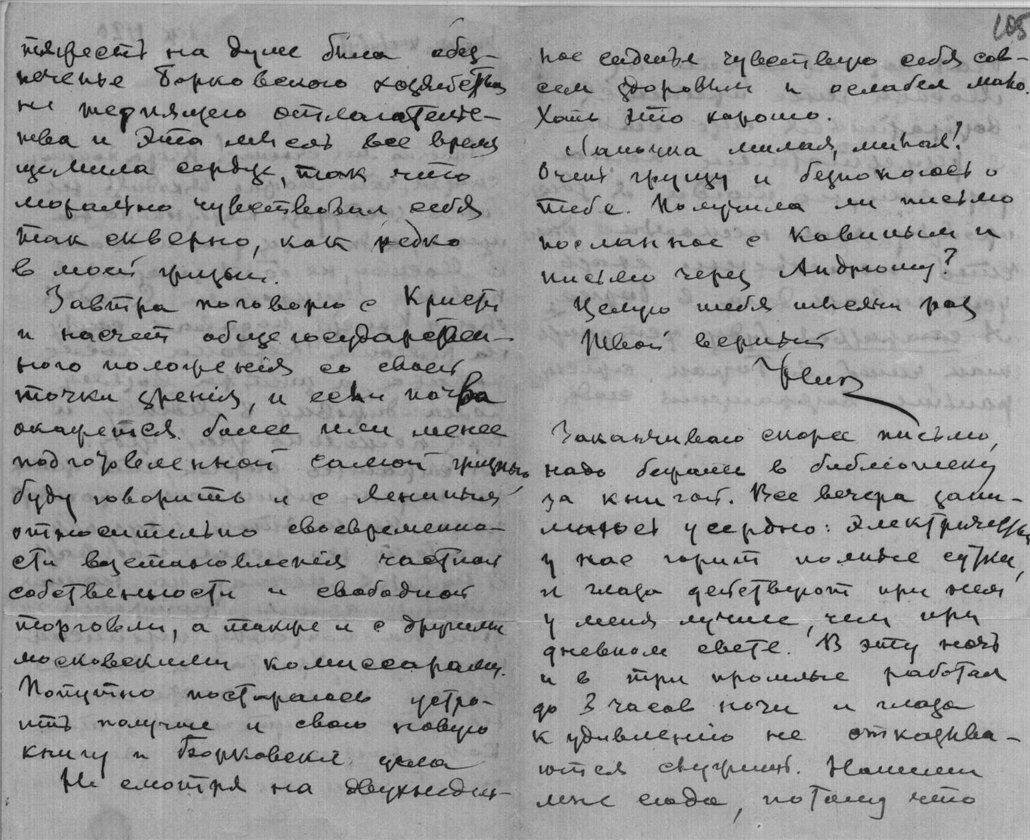 тяжесть на душе была обез-
печенье Борковского хозяйства
не терпящего отлагательс-
тва и эта мысль все время
щемила сердце, так что
морально чувствовал себя
так скверно, как редко
в моей жизни.
Завтра поговорю с Кристи
и насчет общегосударствен-
ного положенія со своей
точки зрения, и если почва
окажется более или менее
подготовленной самой жизнью,
буду говорить и с Лениным
относительно своевременно-
сти возстановления частной
собственности и свободной
торговли, а также и с другими
московскими комиссарами.
Попутно постараюсь устро-
ить получше и свою новую
книгу и Борковскія дела
Не смотря на двухнедель-
ное сиденье чувствую себя сов-
сем здоровым и ослабел мало.
Хоть это хорошо.
милая, милая!
Очень грущу и безпокоюсь о
тебе. Получила ли письмо
посланное с Кавиным и
письмо через Андрюшу?
Целую тебя тысячи раз
Твой верный
Заканчиваю скорее письмо,
надо бежать в библіотеку
за книгой. Все вечера зани-
маюсь усердно: электричество
у нас горит полные сутки,
и глаза действуют при нем
у меня лучше, чем при
дневном свете. В эту ночь
и в три прошлые работал
до 3 часов ночи и глаза
к удивленію не отказыва-
ются служить. Напиши
мне сюда, потому что
105